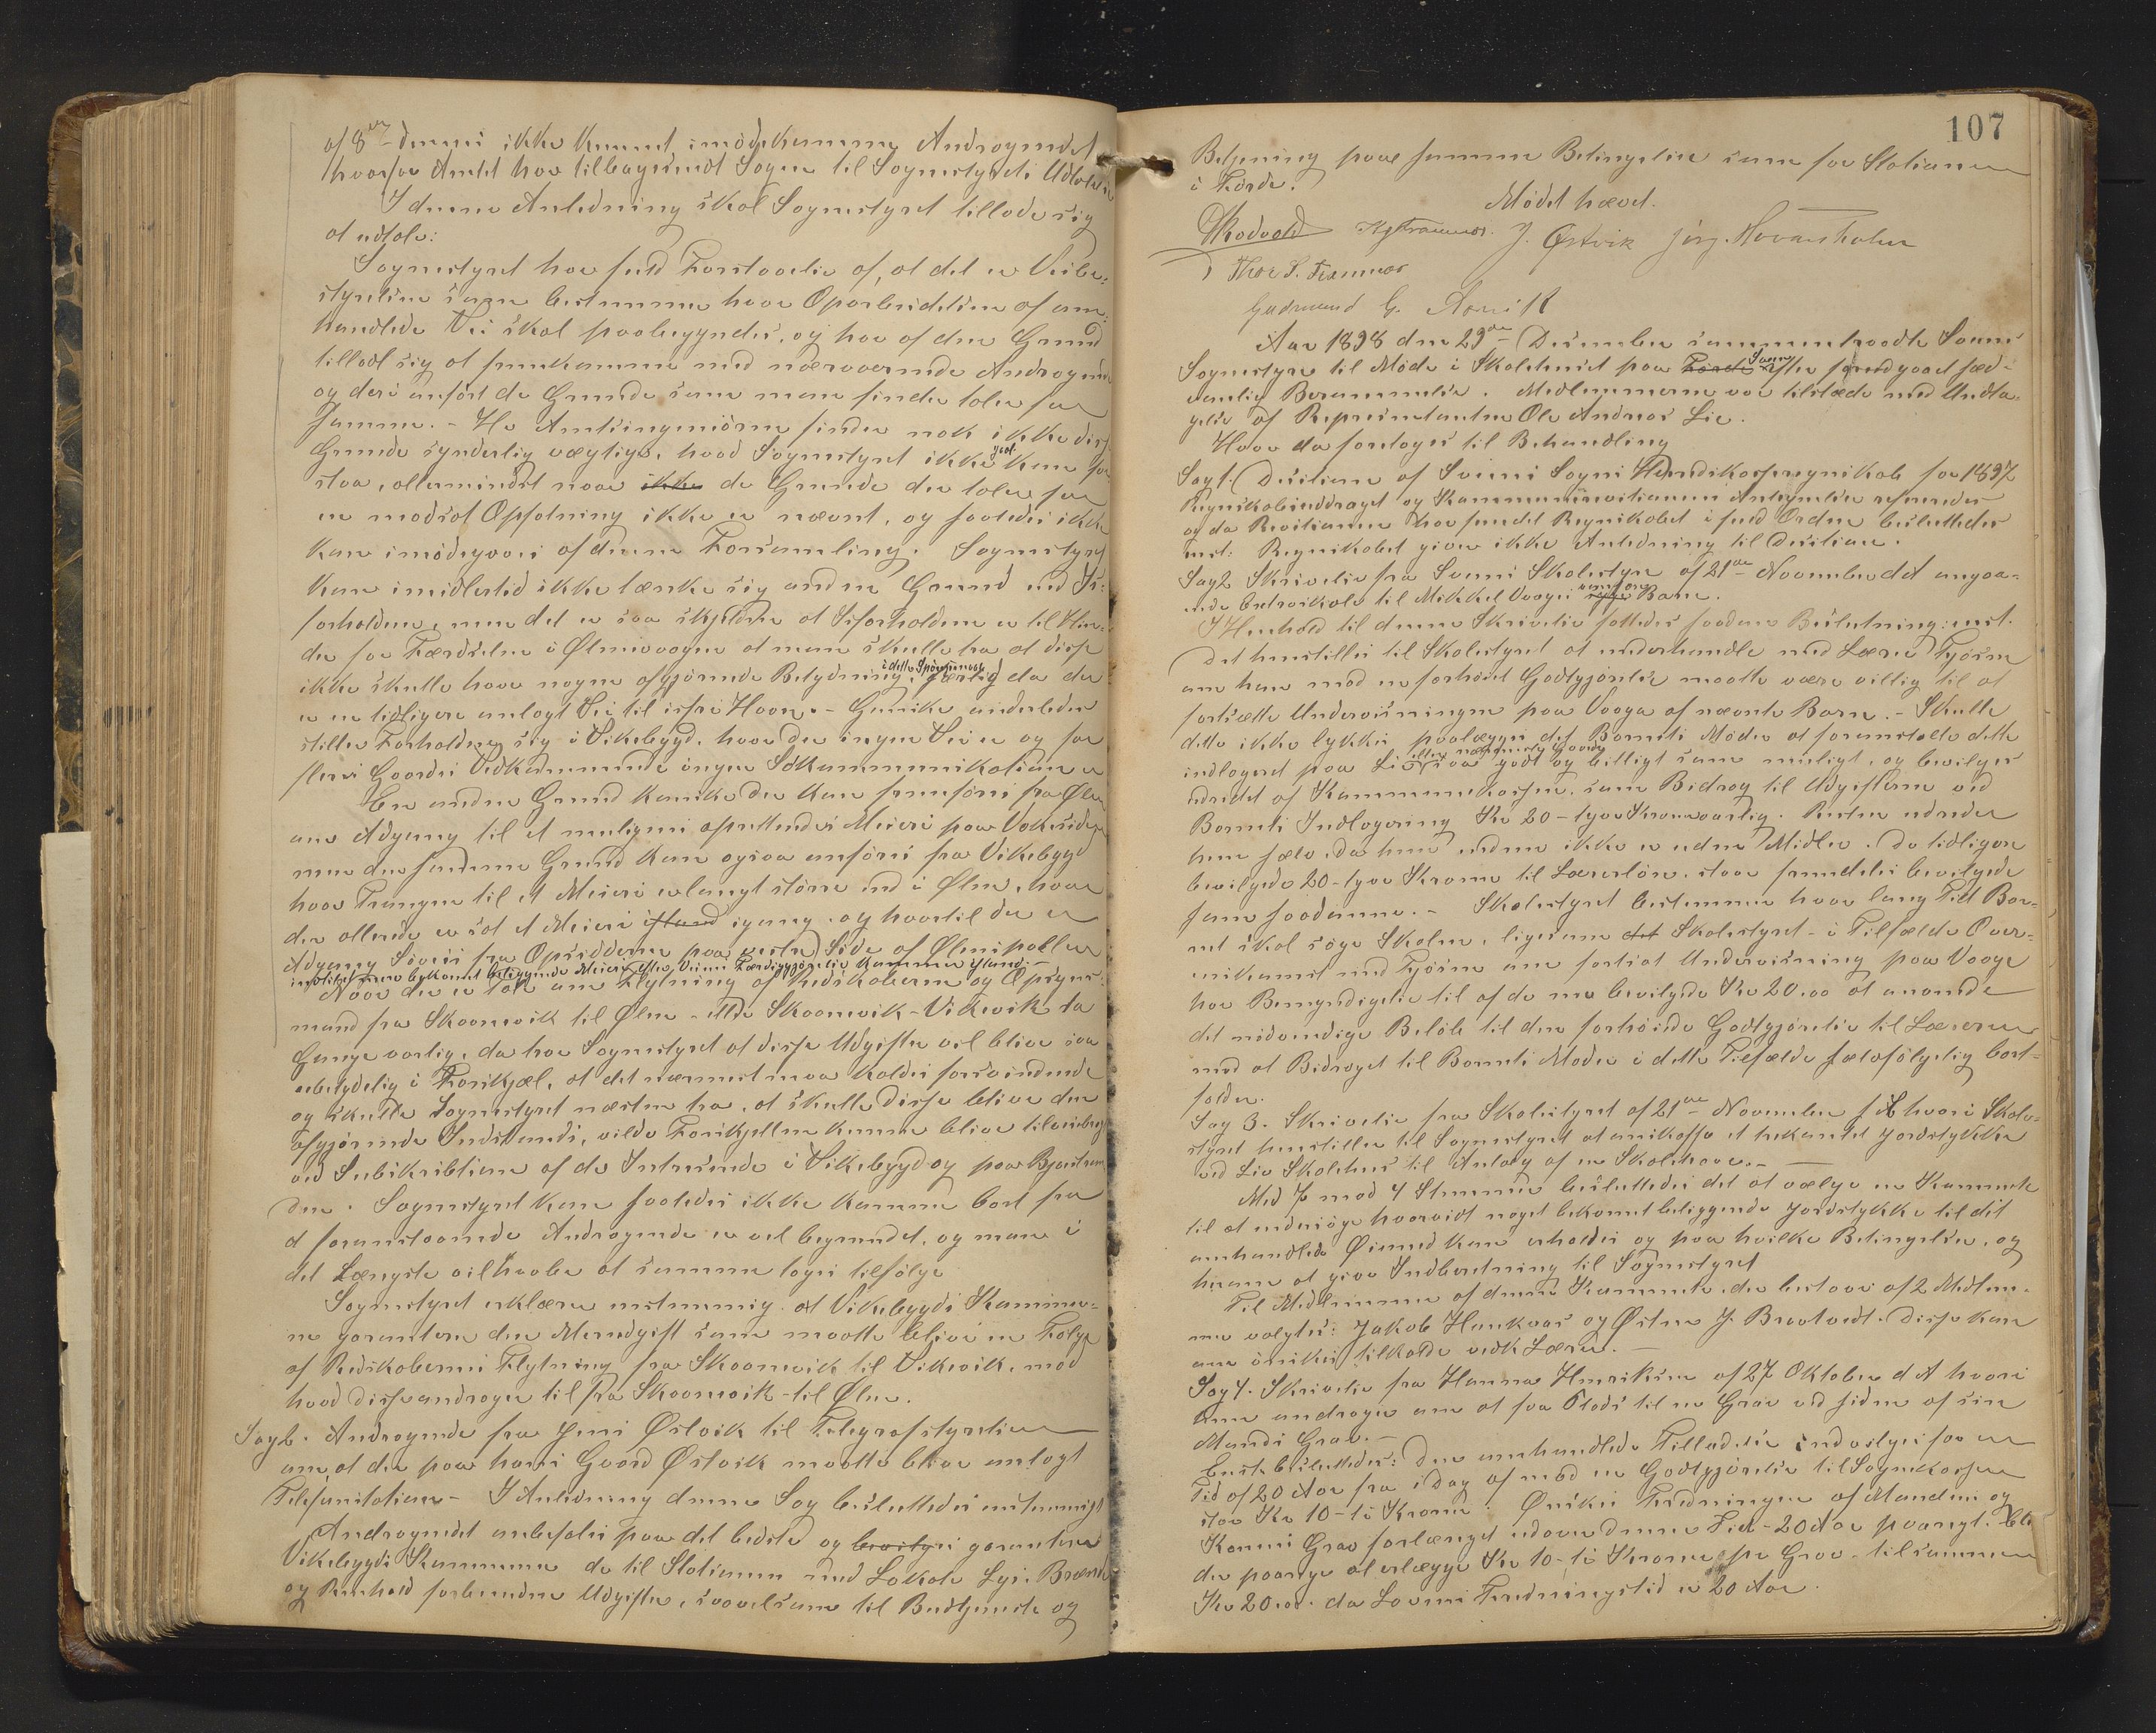 af 8de dennes ikke kunnet imødekomme Andragendet
hvorfor Amtet har tilbagesendt Sagen til Sognestyrets Udtalelse
I denne Anledning skal Sognestyret tillade sig
at udtale:
Sognestyret har fuld Forstaaelse af, at det er Veibe-
styrelsen som bestemmer hvor Oparbeidelsen af om-
handlede Vei skal paabegyndes, og har af den Grund
tilladt sig at fremkomme med nærværende Andragende
og deri anført de Grunde som man finder taler for
samme. - Hr Amtsingeniøren finder nok ikke disse
Grunde synderlig vægtige, hvad Sognestyret ikke godt kan for-
staa, allermindst naar ikke de Grunde der taler for
en modsat Opfatning ikke er nævnt, og saaledes ikke
kan imødegaaes af denne Forsamling. Sognestyret
kan imidlertid ikke tænke sig anden Grund end Is-
forholdene, men det er saa sjelden at Isforholdene er til Hin-
der for Færdselen i Ølensvaagen at man skulle tro at disse
ikke skulle have nogen afgjørende Betydning i dette Spørgsmaal, særlig da der
er en tidligere anlagt Vei til isfri Havn. - Ganske anderledes
stiller Forholdene sig i Vikebygd, hvor der ingen Vei er og for
flere Gaardes Vedkommende ingen Søkommunikation er
En anden Grund kanske der kan fremføres fra Ølen
om Adgang til et muligens oprettendes Meieri paa Vakresiden
men den samme Grund kan ogsaa anføres fra Vikebygd
hvor Trangen til et Meieri er langt større end i Ølen, hvor
der allerede er sat et Meieri istand igang og hvortil der er
Adgang Søveis fra Opsidderne paa vestre Side af Ølenspollen
indtil et mere bekvemt beliggende Meieri efter Veiens Færdiggjørelse kommer istand. -
Naar der er Tale om Flytning af Redskaberne og Opsyns-
mand fra Skaanevik til Ølen - eller Skaanevik - Vikevik to
Gange aarlig, da tror Sognestyret at disse Udgifter vil blive saa
ubetydelig i Forskjel, at det nærmest maa kaldes forsvindende
og skulle Sognestyret næsten tro, at skulle disse blive den
afgjørende Indvending, vilde Forskjellen kunne blive tilveiebragt
ved Subskribtion af de Interesserede i Vikebygd og paa Bjoastran-
den. Sognestyret kan saaledes ikke komme bort fra
at foranstaaende Andragende er vel begrundet, og man i
det Længste vil haabe at samme tages tilfølge
Sognestyret erklærer enstemmig at Vikebygds Kommu-
ne garanterer den Merudgift som maatte blive en Følge
af Redskabernes Flytning fra Skaanevik til Vikevik, mod
hvad disse andrager til fra Skaanevik til Ølen.
Sag 6. Andragende fra Jens Østvik til Telegrafstyrelsen
om, at der paa hans Gaard Østvik maatte blive anlagt
Telefonstation - I Anledning denne Sag besluttedes enstemmigt
Andragendet anbefales paa det bedste og bevilges garanterer
Vikebygds Kommune de til Stationen med Lokale Lys, Brænde
og Renhold forbundne Udgifter, saavelsom til Budtjeneste og
107
Betjening paa samme Betingelser som for Stationen
i Førde.
Mødet hævet.
J. Østvik
Thore S. Framnes
Gudmund G. Aarvik
Aar 1898 den 29de December sammentraadte Søvnes
Sognestyre til Møde i Skolehuset paa Førde Søvne efter forudgaaet sæd-
vanlig Berammelse. Medlemmerne var tilstede med Undta-
gelse af Repræsentanten Ole Andreas Lie.
Hvor da foretoges til Behandling
Sag 1. Decision af Sveens Sogns Herredskasseregnskab for 1897
Regnskabsuddraget og Kommunerevisionens Antegnelser refereredes
og da Revisionen har fundet Regnskabet i fuld Orden besluttedes
enst: Regnskabet giver ikke Anledning til Decision.
Sag 2 Skrivelse fra Sveens Skolestyre af 21de November d A angaa-
ende Barn.
I Henhold til denne Skrivelse fattedes saadan Beslutning: enst.
Det henstilles til Skolestyret at underhandle med Lærer Tjørsen
om han mod en forhøiet Godtgjørelse maatte være villig til at
fortsætte Undervisningen paa Vaaga af nævnte Barn. - Skulle
dette ikke lykkes paalægges det Barnets Moder at foranstalte dette
indlogeret paa Lie eller nærmeste Gaarde saa godt og billigt som muligt, og bevilges
udredet af Kommunekassen som Bidrag til Udgifterne ved
Barnets Indlogering Kr 20 - tyve Kroner aarlig. Resten udreder
hun selv, da hun endnu ikke er uden Midler. De tidligere
bevilgede 20 - tyve Kroner til Lærerløn staar fremdeles bevilgede
som saadanne. - Skolestyret bestemmer hvor lang Tid Bar-
net skal søge Skolen, ligesom det Skolestyret - i Tilfælde Over-
enskomst med Tjørsen om fortsat Undervisning paa Vaage
har Bemyndigelse til af de nu bevilgede Kr 20,00 at anvende
det nødvendige Beløb til den forhøiede Godtgjørelse til Læreren
med at Bidraget til Barnets Moder i dette Tilfælde selvfølgelig bort-
falder.
Sag 3. Skrivelse fra Skolestyret af 21de November d A hvori Skole-
styret henstiller til Sognestyret at anskaffe et trekantet Jordstykke
ved Lie Skolehus til Anlæg af en Skolehave. -
Med 7 mod 4 Stemmer besluttedes det at vælge en Komite
til at undersøge hvorvidt noget bekvemt beliggende Jordstykke til det
omhandlede Øiemed kan erholdes og paa hvilke Betingelser, og
herom at give Indberetning til Sognestyret
Til Medlemmer af denne Komite, der bestaar af 2 Medlem-
mer valgtes: Jakob Haukaas og Østen J. Braatveit. Disse kan
om ønskes tilkalde vedk Lærer. -
Sag 4. Skrivelse fra Hanna Henriksen af 27 Oktober d A hvori
hun andrager om at faa Plads til en Grav ved Siden af sin
Mands Grav. -
Enst. besluttedes: Den omhandlede Tilladelse indvilges for en
Tid af 20 Aar fra i Dag af mod en Godtgjørelse til Sognekassen
stor Kr 10 - ti Kroner. Ønskes Fredningen af Mandens og
Konens Grav forlænget udover denne Tid - 20 Aar paany, bli
der paany at erlægge Kr 10 - ti Kroner pr Grav - tilsammen
Kr 20.00. da Lovens Fredningstid er 20 Aar.